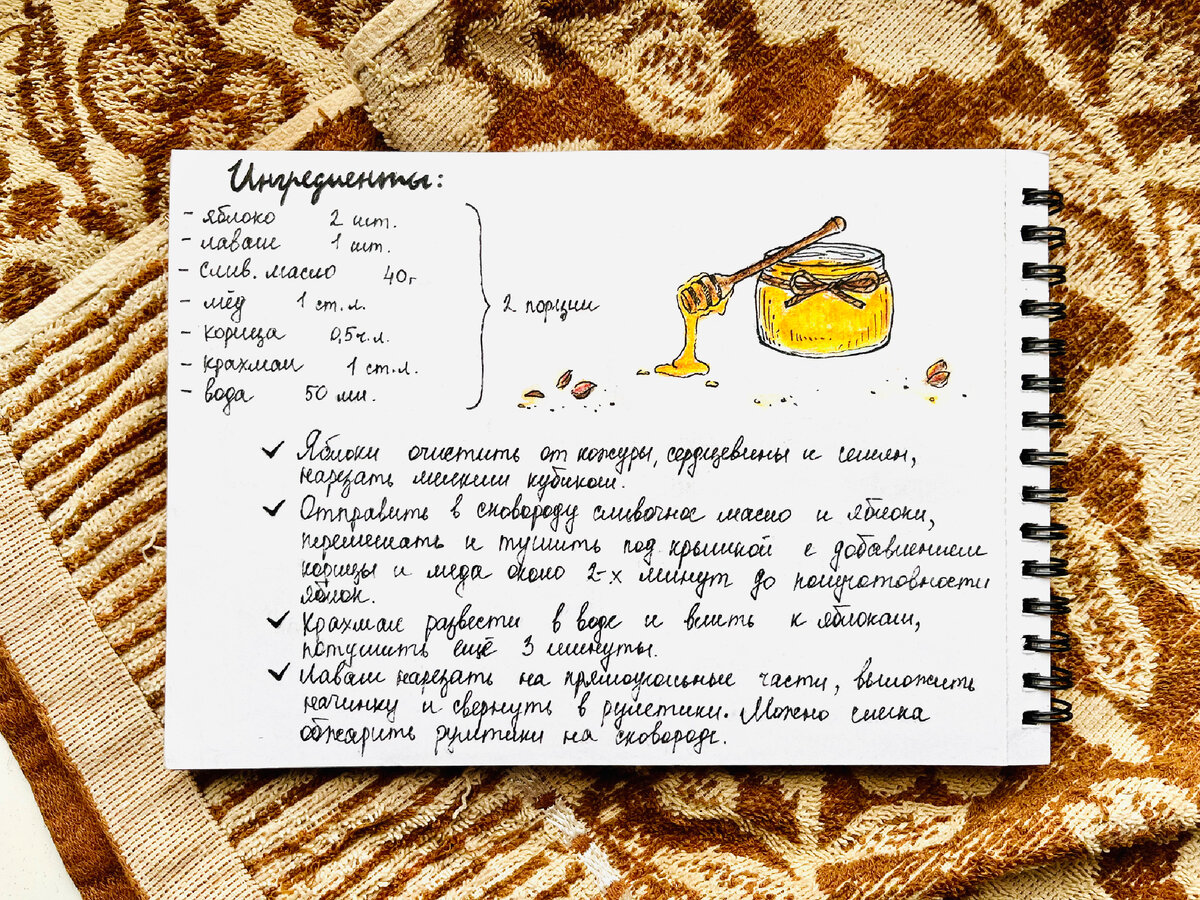 Ингредиенты:
- яблоко 2 шт.
- лаваш 1 шт.
- слив. масло 40г
- мёд 1 ст.л.
- корица 0,5ч.л.
- крахмал 1 ст.л.
- вода 50 мл.
2 порции
✓ Яблоки очистить от кожуры, сердцевины и семян,
нарезать мелким кубиком.
✓ Отправить в сковороду сливочное масло и яблоки,
перемешать и тушить под крышкой с добавлением
корицы и меда около 2-х минут до полуготовности
яблок.
✓ Крахмал развести в воде и влить к яблокам,
потушить ещё 3 минуты.
✓ Лаваш нарезать на прямоугольные части, выложить
начинку и свернуть в рулетики. Можно слегка
обжарить рулетики на сковороде.